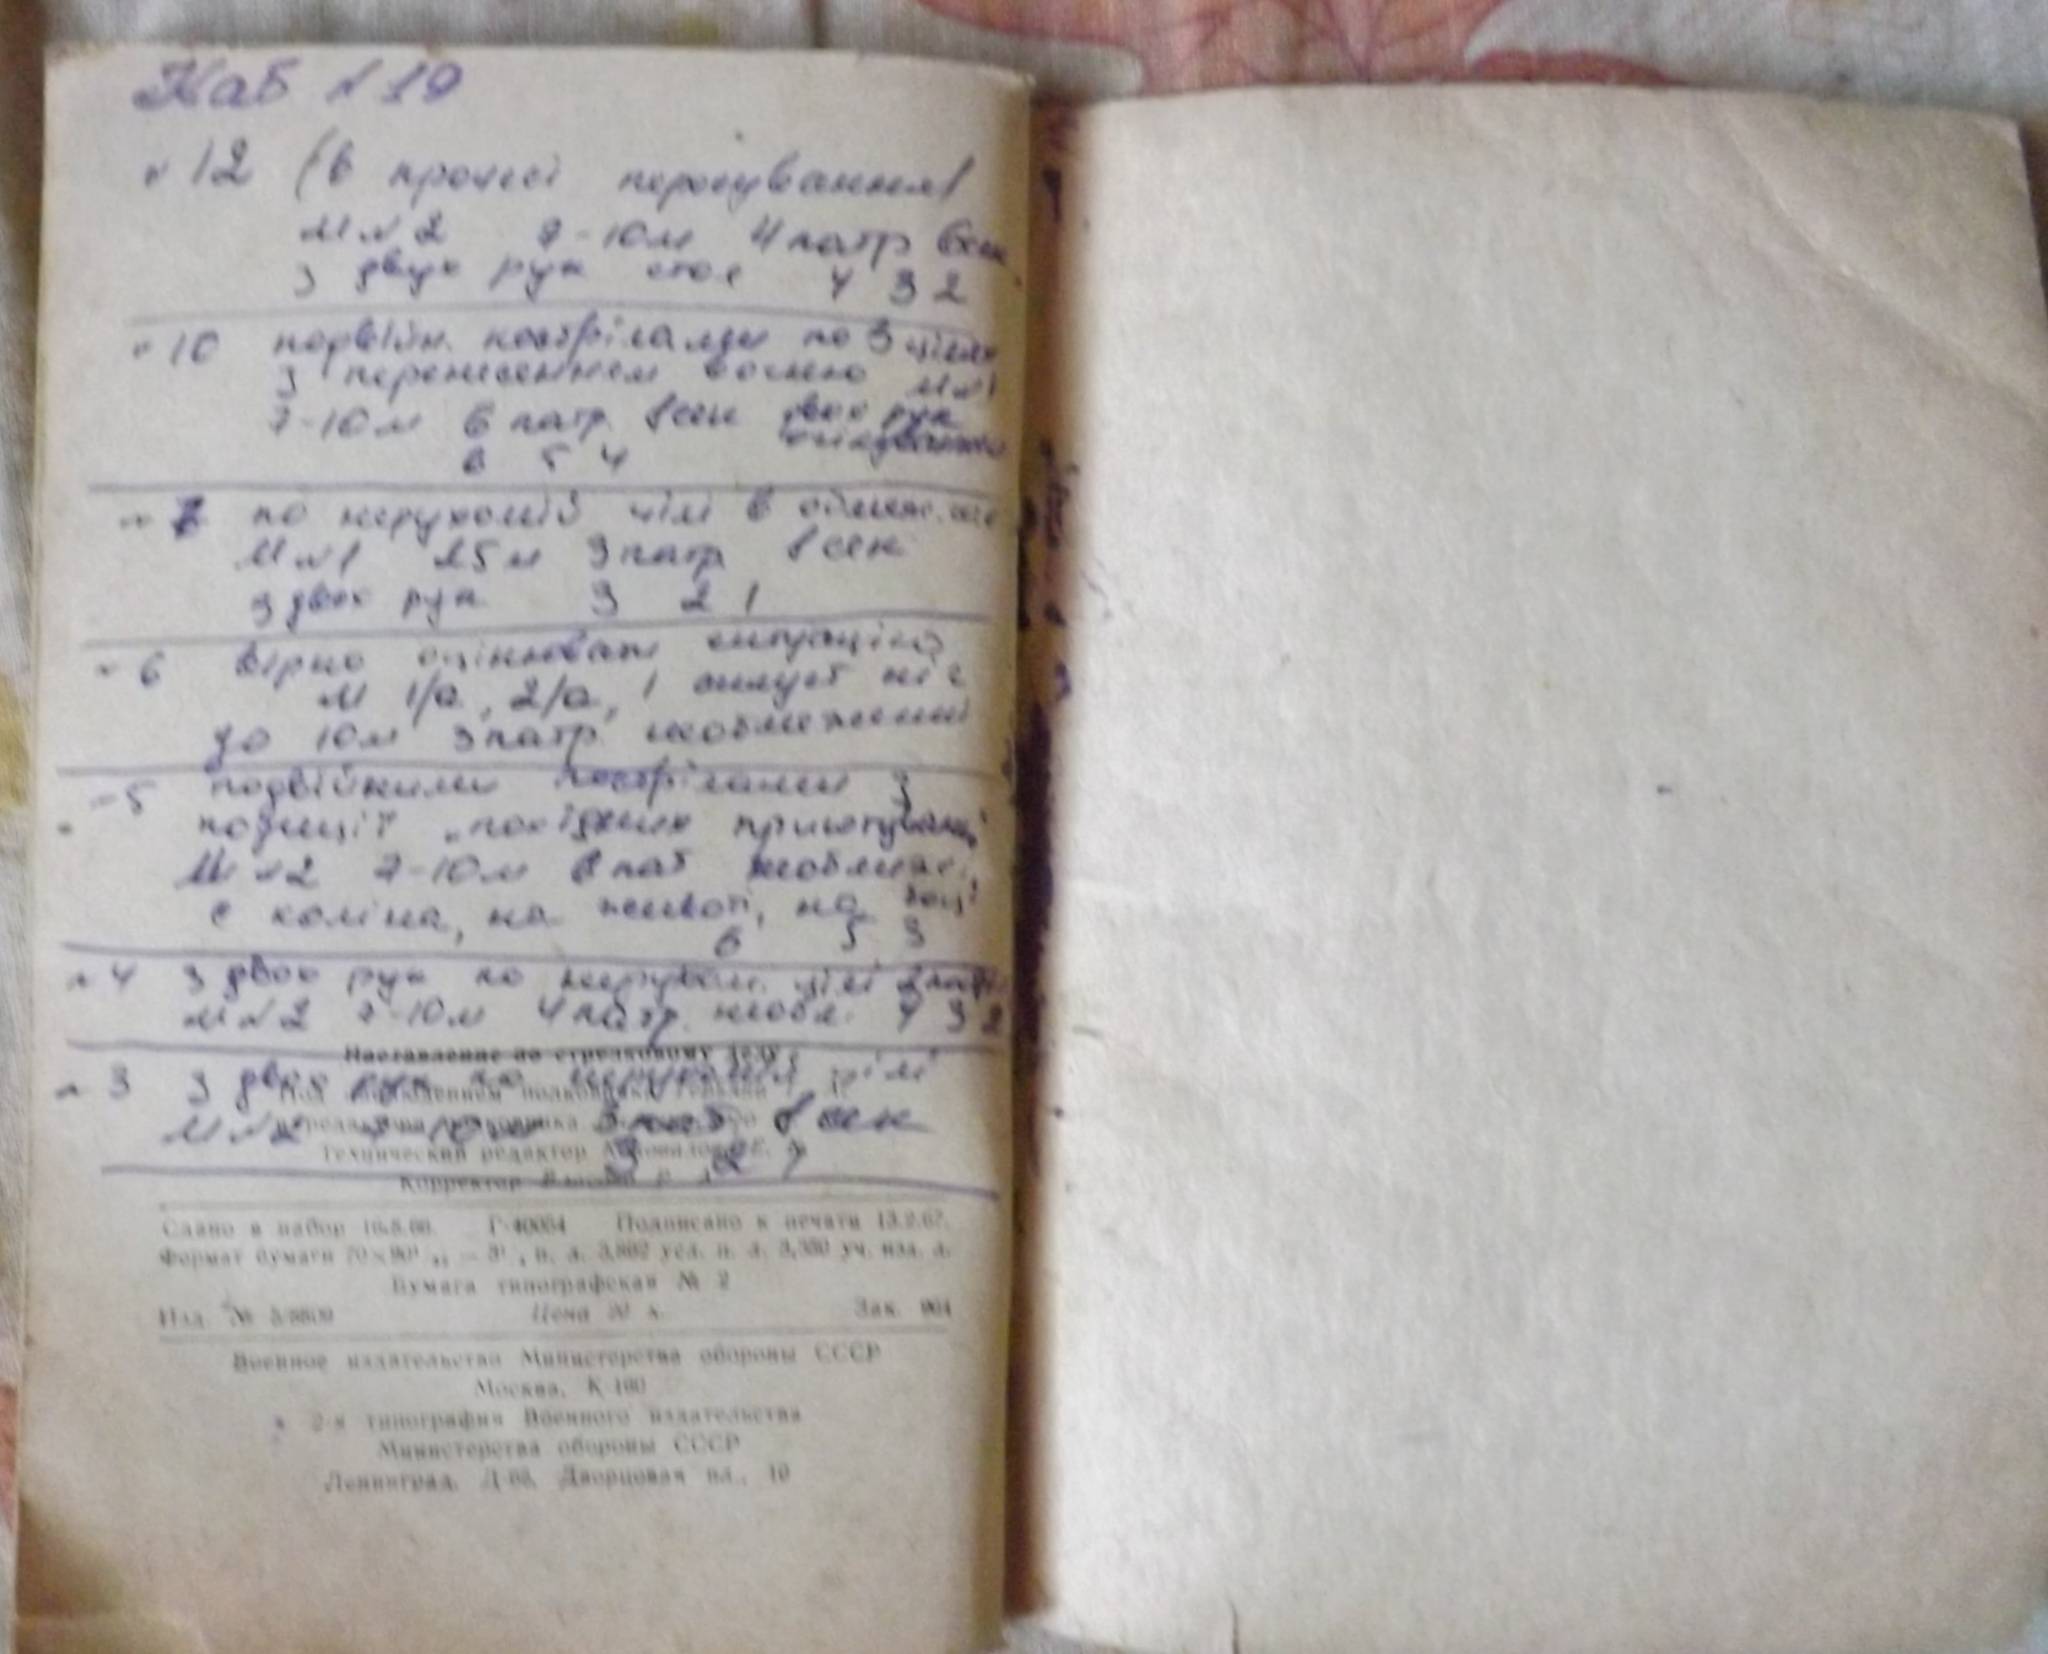 Каб №19
№12 (в процесі пересування)
М №2 7-10м 4 патр 6сек
з двух рук стоя 4 3 2
№10 по 3 цілях
з перенесенням вогню М№1
7-10м 6 патр. 8сек двох рук
6 5 4
№ по нерухомій цілі в обмеж.
М№1 25м 3 патр 8 сек
з двох рук 3 2 1
№6 вірно оцінювати ситуацію
М 1/а, 2/а, 1 силует
до 10м 3 патр. необмежений
№5 подвійними пострілами з
позиції
М№2 7-10м 6 пат необмеж.
с коліна, на животі, на боці
6 5 3
№4 з двох рук по нерухом. цілі
М№2 7-10м 4 патр. необм. 4 3 2
Наставление по стрелковому делу
№3 з двох рук по нерухомій цілі
М№2 7-10м 3 пат 8 сек
Технический редактор
3 2 1
Корректор
Сдано в набор Г-40064 Подписано к печати 13.2.67.
Формат бумаги п. л. усл. п. л. уч. изд. л.
Бумага типографская № 2
Изд. № Цена 20 к. Зак. 904
Военное издательство Министерства обороны СССР
Москва, К-160
2-я типография Военного издательства
Министерства обороны СССР
Ленинград, Д-65, Дворцовая пл., 10